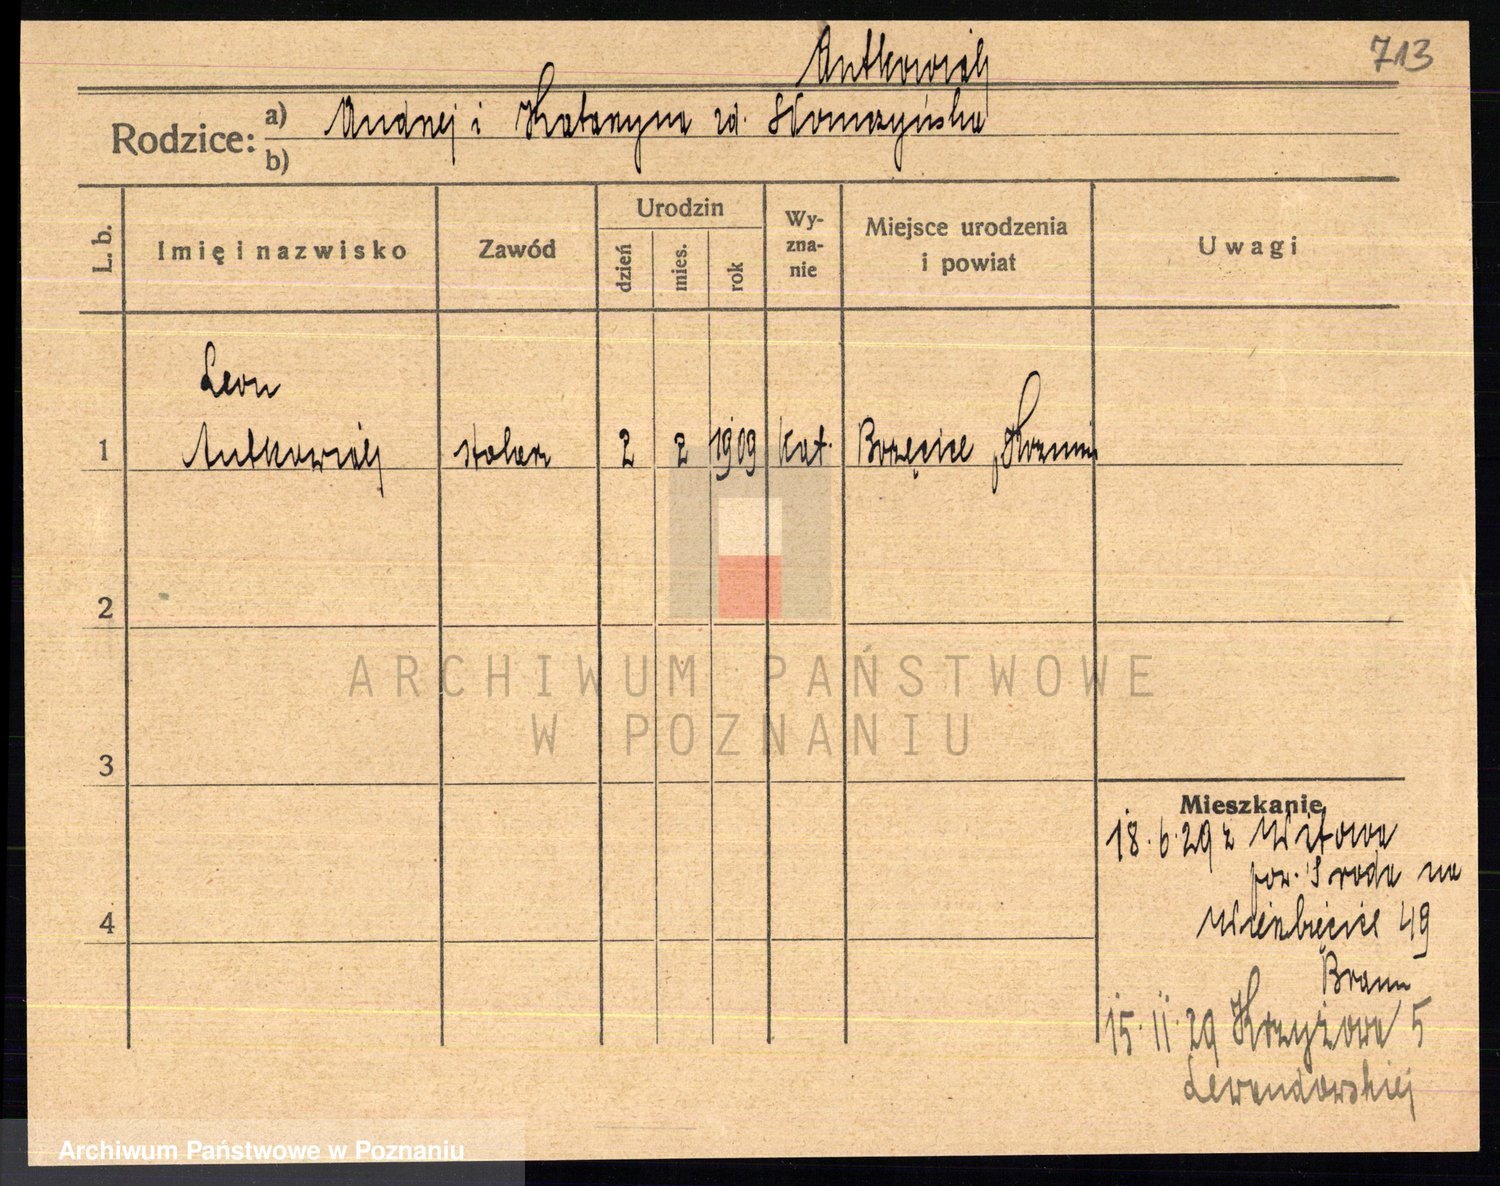 713
Antkowiak
Rodzice: a) Andrzej i Katarzyna zd. Słomczyńska
b)
L. b.
Imię i nazwisko
Zawód
Urodzin
dzień
mies.
rok
Wy-
zna-
nie
Miejsce urodzenia
i powiat
Uwagi
Leon
1 Antkowiak stolarz 2 2 1909 kat. Borzęcice, Koźmin
2
3
4
ARCHIWUM PAŃSTWOWE
W POZNANIU
Mieszkanie
18.6.29 z Witowa
pow. Środa na
Wierzbięcice 49
Braun
15.11.29 Krzyżowa 5
Lewandowskiej
Archiwum Państwowe w Poznaniu